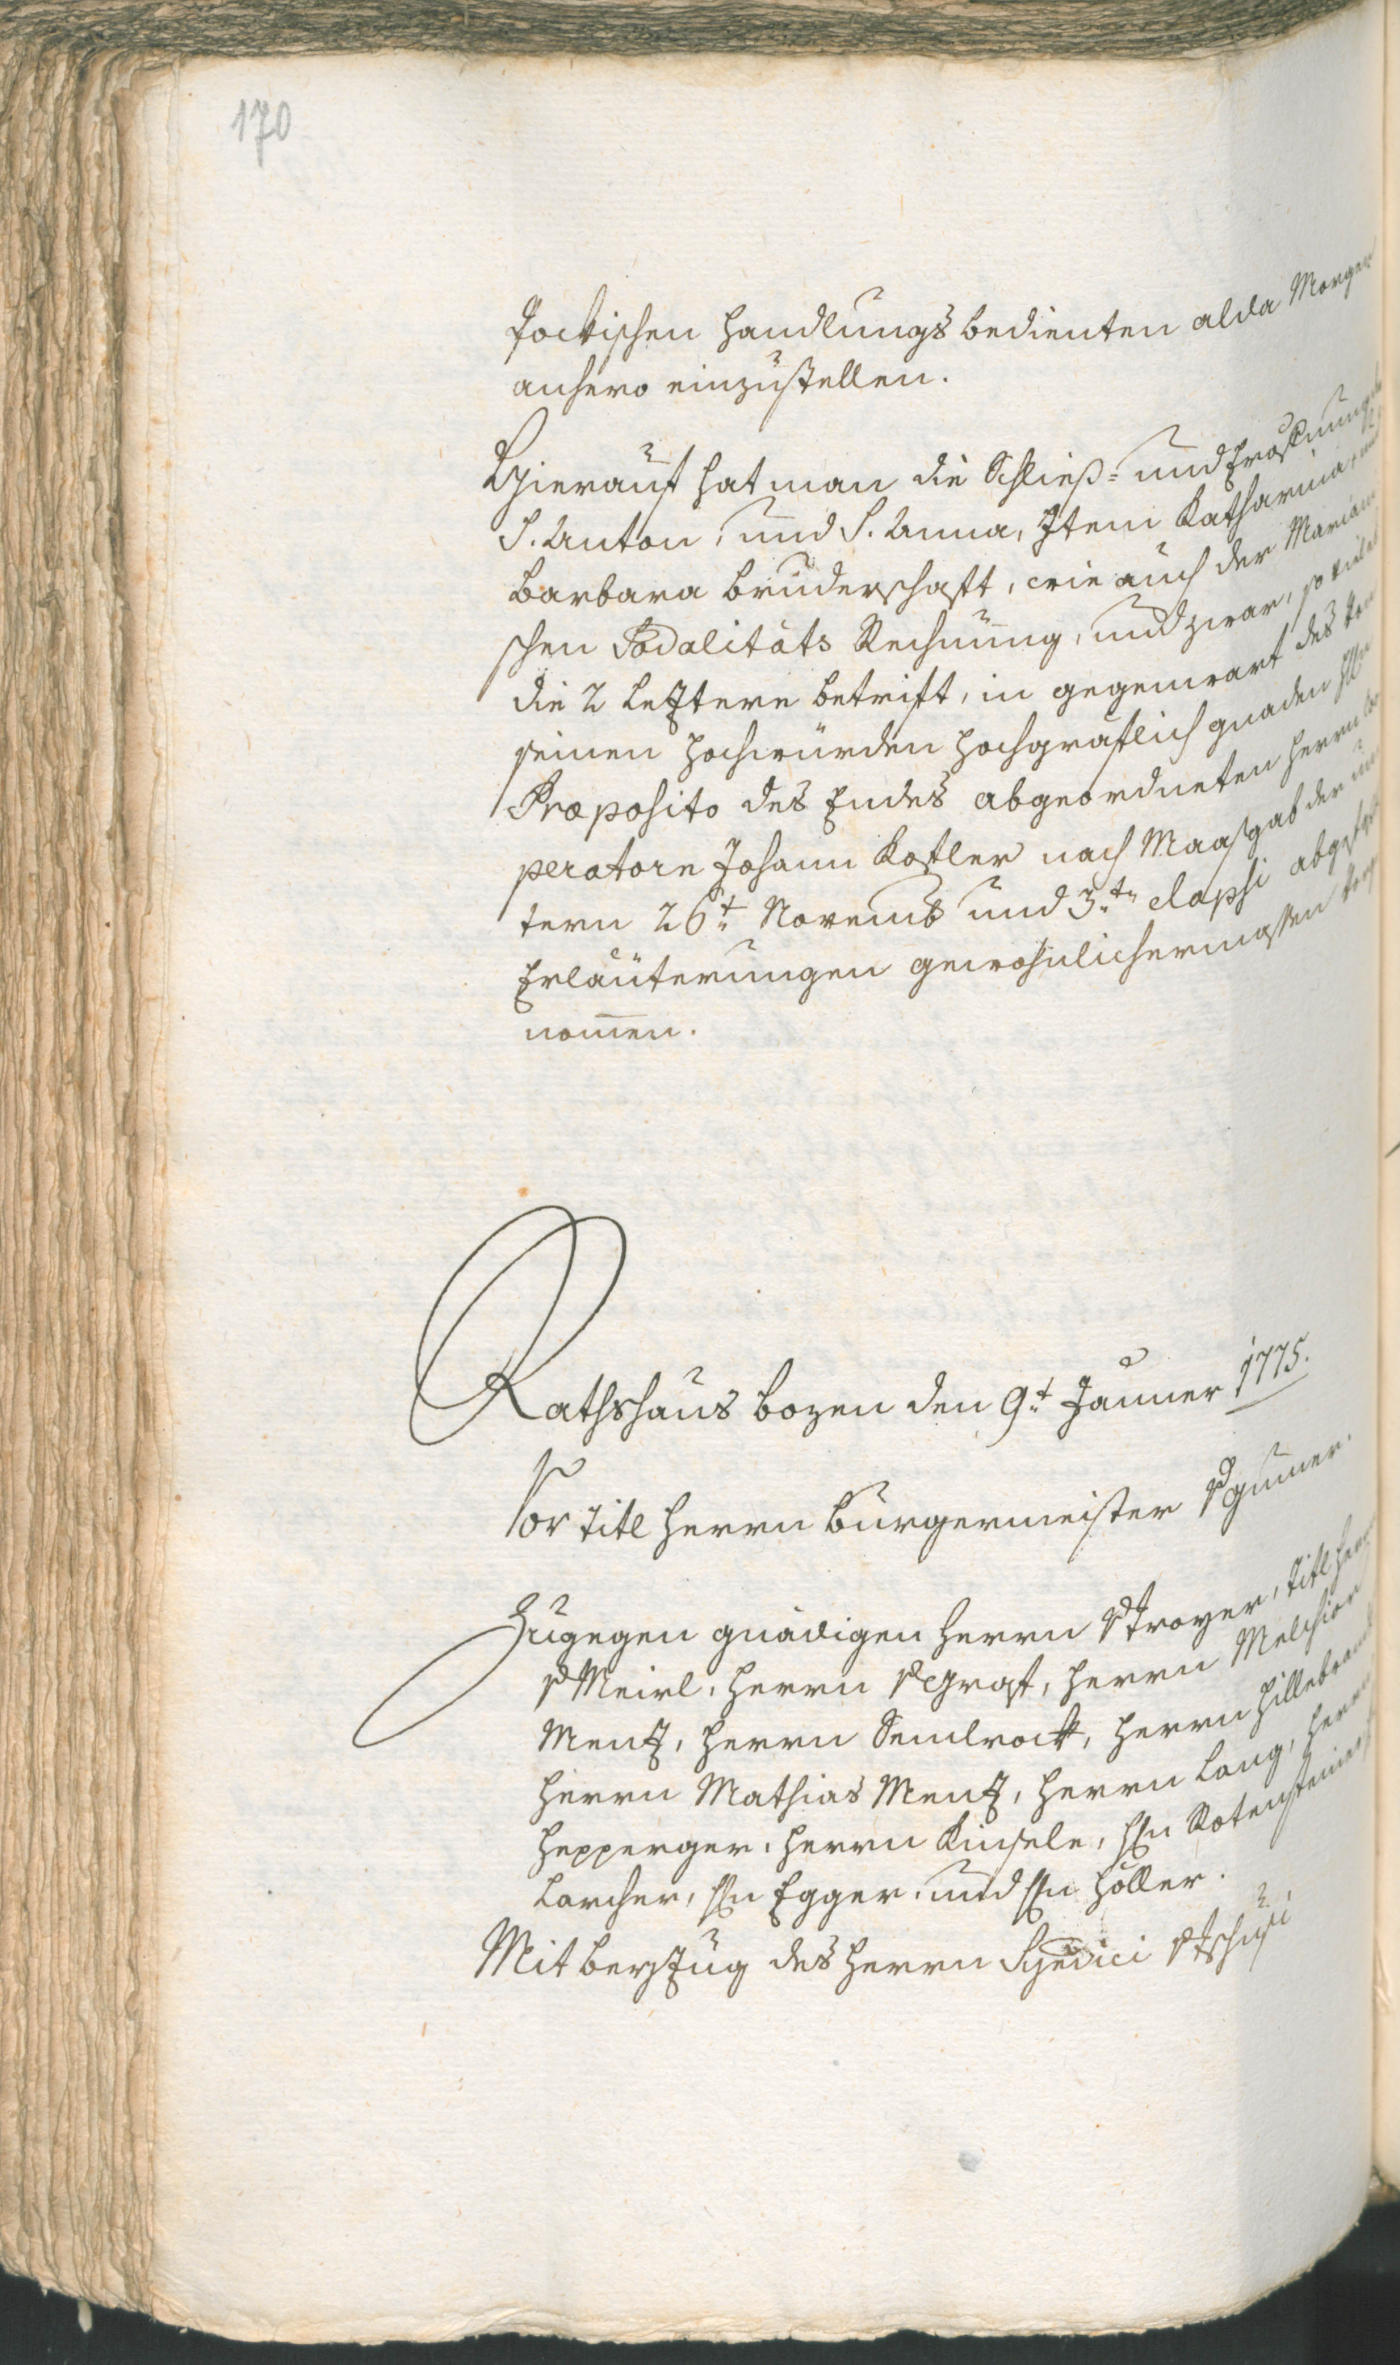 170
Jockischen Handlungs bedienten alda Morgen
anhero einzustellen.
Hierauf hat man die Schließ- und Eröffnung der
S. Anton, und S. Anna, Item Katharina, und
Barbara Bruderschaft, wie auch der Mariani
schen Sodalitäts Rechnung, und zwar, so viel
die 2 Leztere betrift, in gegenwart des von
seinen Hochwürden Hochgräflich gnaden Hn
Præposito des Endes abgeordneten Herrn Coo
peratore Johann Kostler nach Maaßgab der un
tern 26t Novemb und 3.ten elapsi abgefast
Erläuterungen gewohnlichermassen vorge
nomen.
Rathshaus Bozen den 9t Jänner 1775.
Vor titl Herrn Burgermeister v Gumer.
Zugegen gnädigen Herrn v Troyer, titl Herrn
v Meirl, Herrn v Graf, Herrn Melchior
Menz, Herrn Sendrock, Herrn Hillebrand
Herrn Mathias Menz, Herrn Lang, Herrn
Hepperger, Herrn Kinsele, Hn Rotensteiner
Larcher, Hn Egger, und Hn Höller.
Mit beyzug des Herrn Syndici v Tschusi